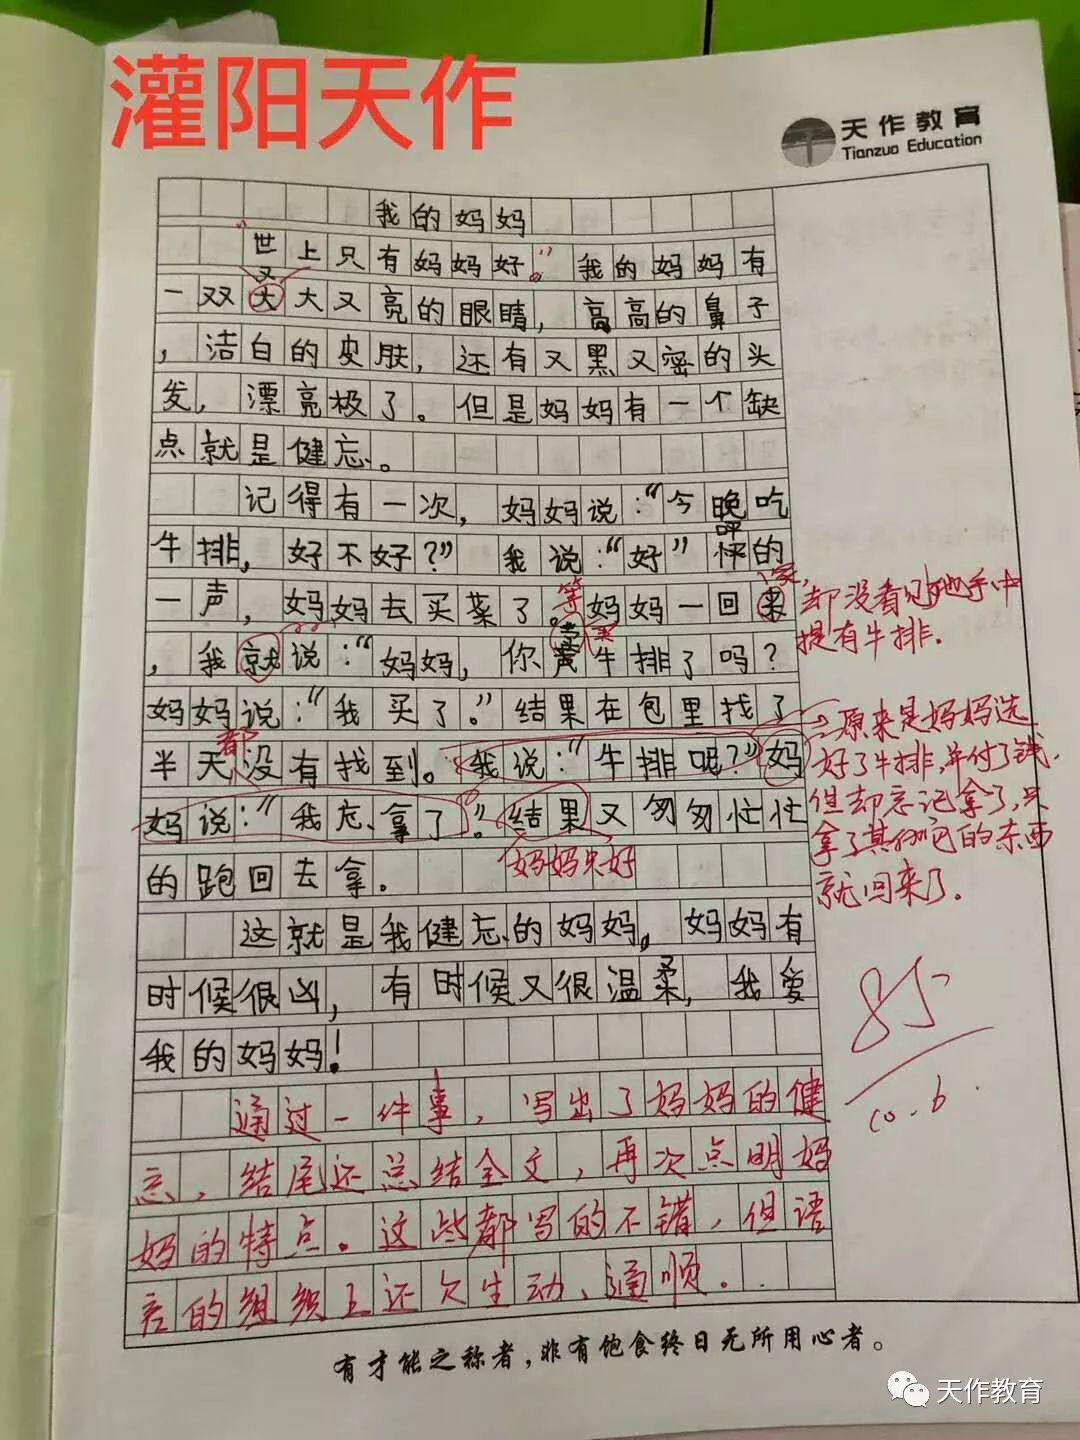 灌阳天作
天作教育
Tianzuo Education
我的妈妈
“世上只有妈妈好。”我的妈妈有
又
一双大大又亮的眼睛，高高的鼻子
，洁白的皮肤，还有又黑又密的头
发，漂亮极了。但是妈妈有一个缺
点就是健忘。
记得有一次，妈妈说：“今晚吃
牛排，好不好？”我说：“好”怦的
呯
一声，妈妈去买菜了。等妈妈一回来
家，却没看见她手中
提有牛排.
，我就说：“妈妈，你卖牛排了吗？
买
妈妈说：“我买了。”结果在包里找了
半天都没有找到。我说：“牛排呢？”妈
妈说：“我忘拿了。”结果又匆匆忙忙
原来是妈妈选
好了牛排，并付了钱.
但却忘记拿了，只
拿了其他的东西
就回来了.
妈妈只好
的跑回去拿。
这就是我健忘的妈妈。妈妈有
时候很凶，有时候又很温柔，我爱
我的妈妈！
85
10.6.
通过一件事，写出了妈妈的健
忘，结尾还总结全文，再次点明妈
妈的特点。这些都写的不错，但语
言的组织上还欠生动、通顺。
有才能之称者，非有饱食终日无所用心者。
天作教育